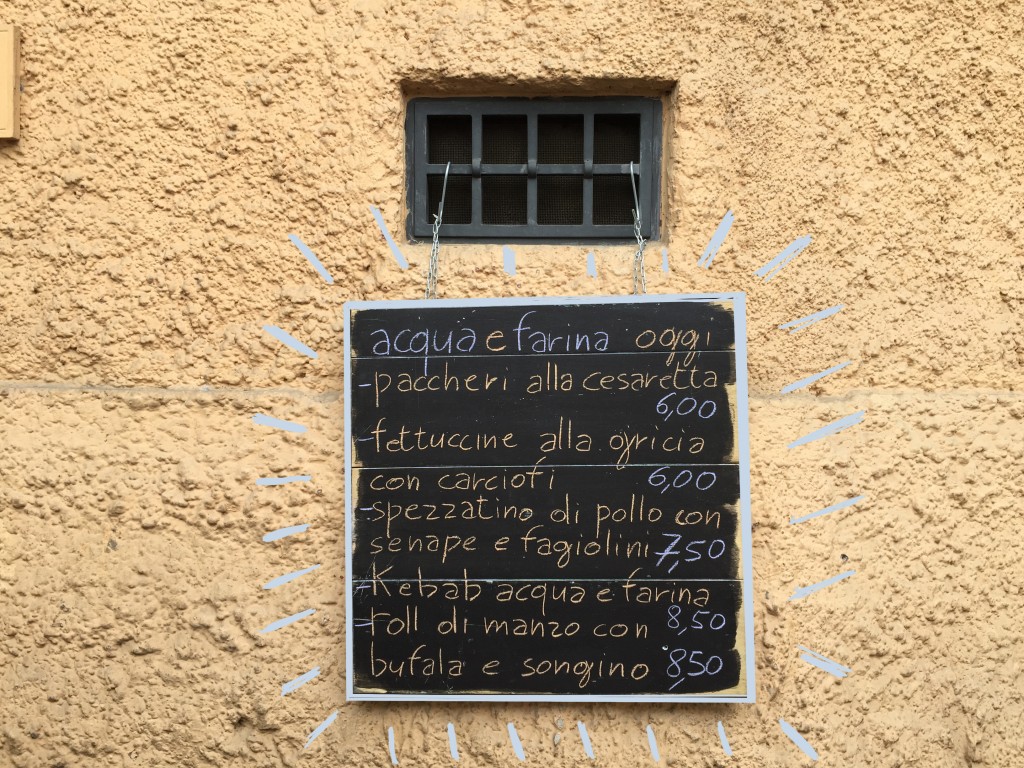 acqua e farina oggi
- paccheri alla cesaretta
6,00
- fettuccine alla gricia
con carciofi 6,00
- spezzatino di pollo con
senape e fagiolini 7,50
- Kebab acqua e farina
8,50
- roll di manzo con
bufala e songino 8,50